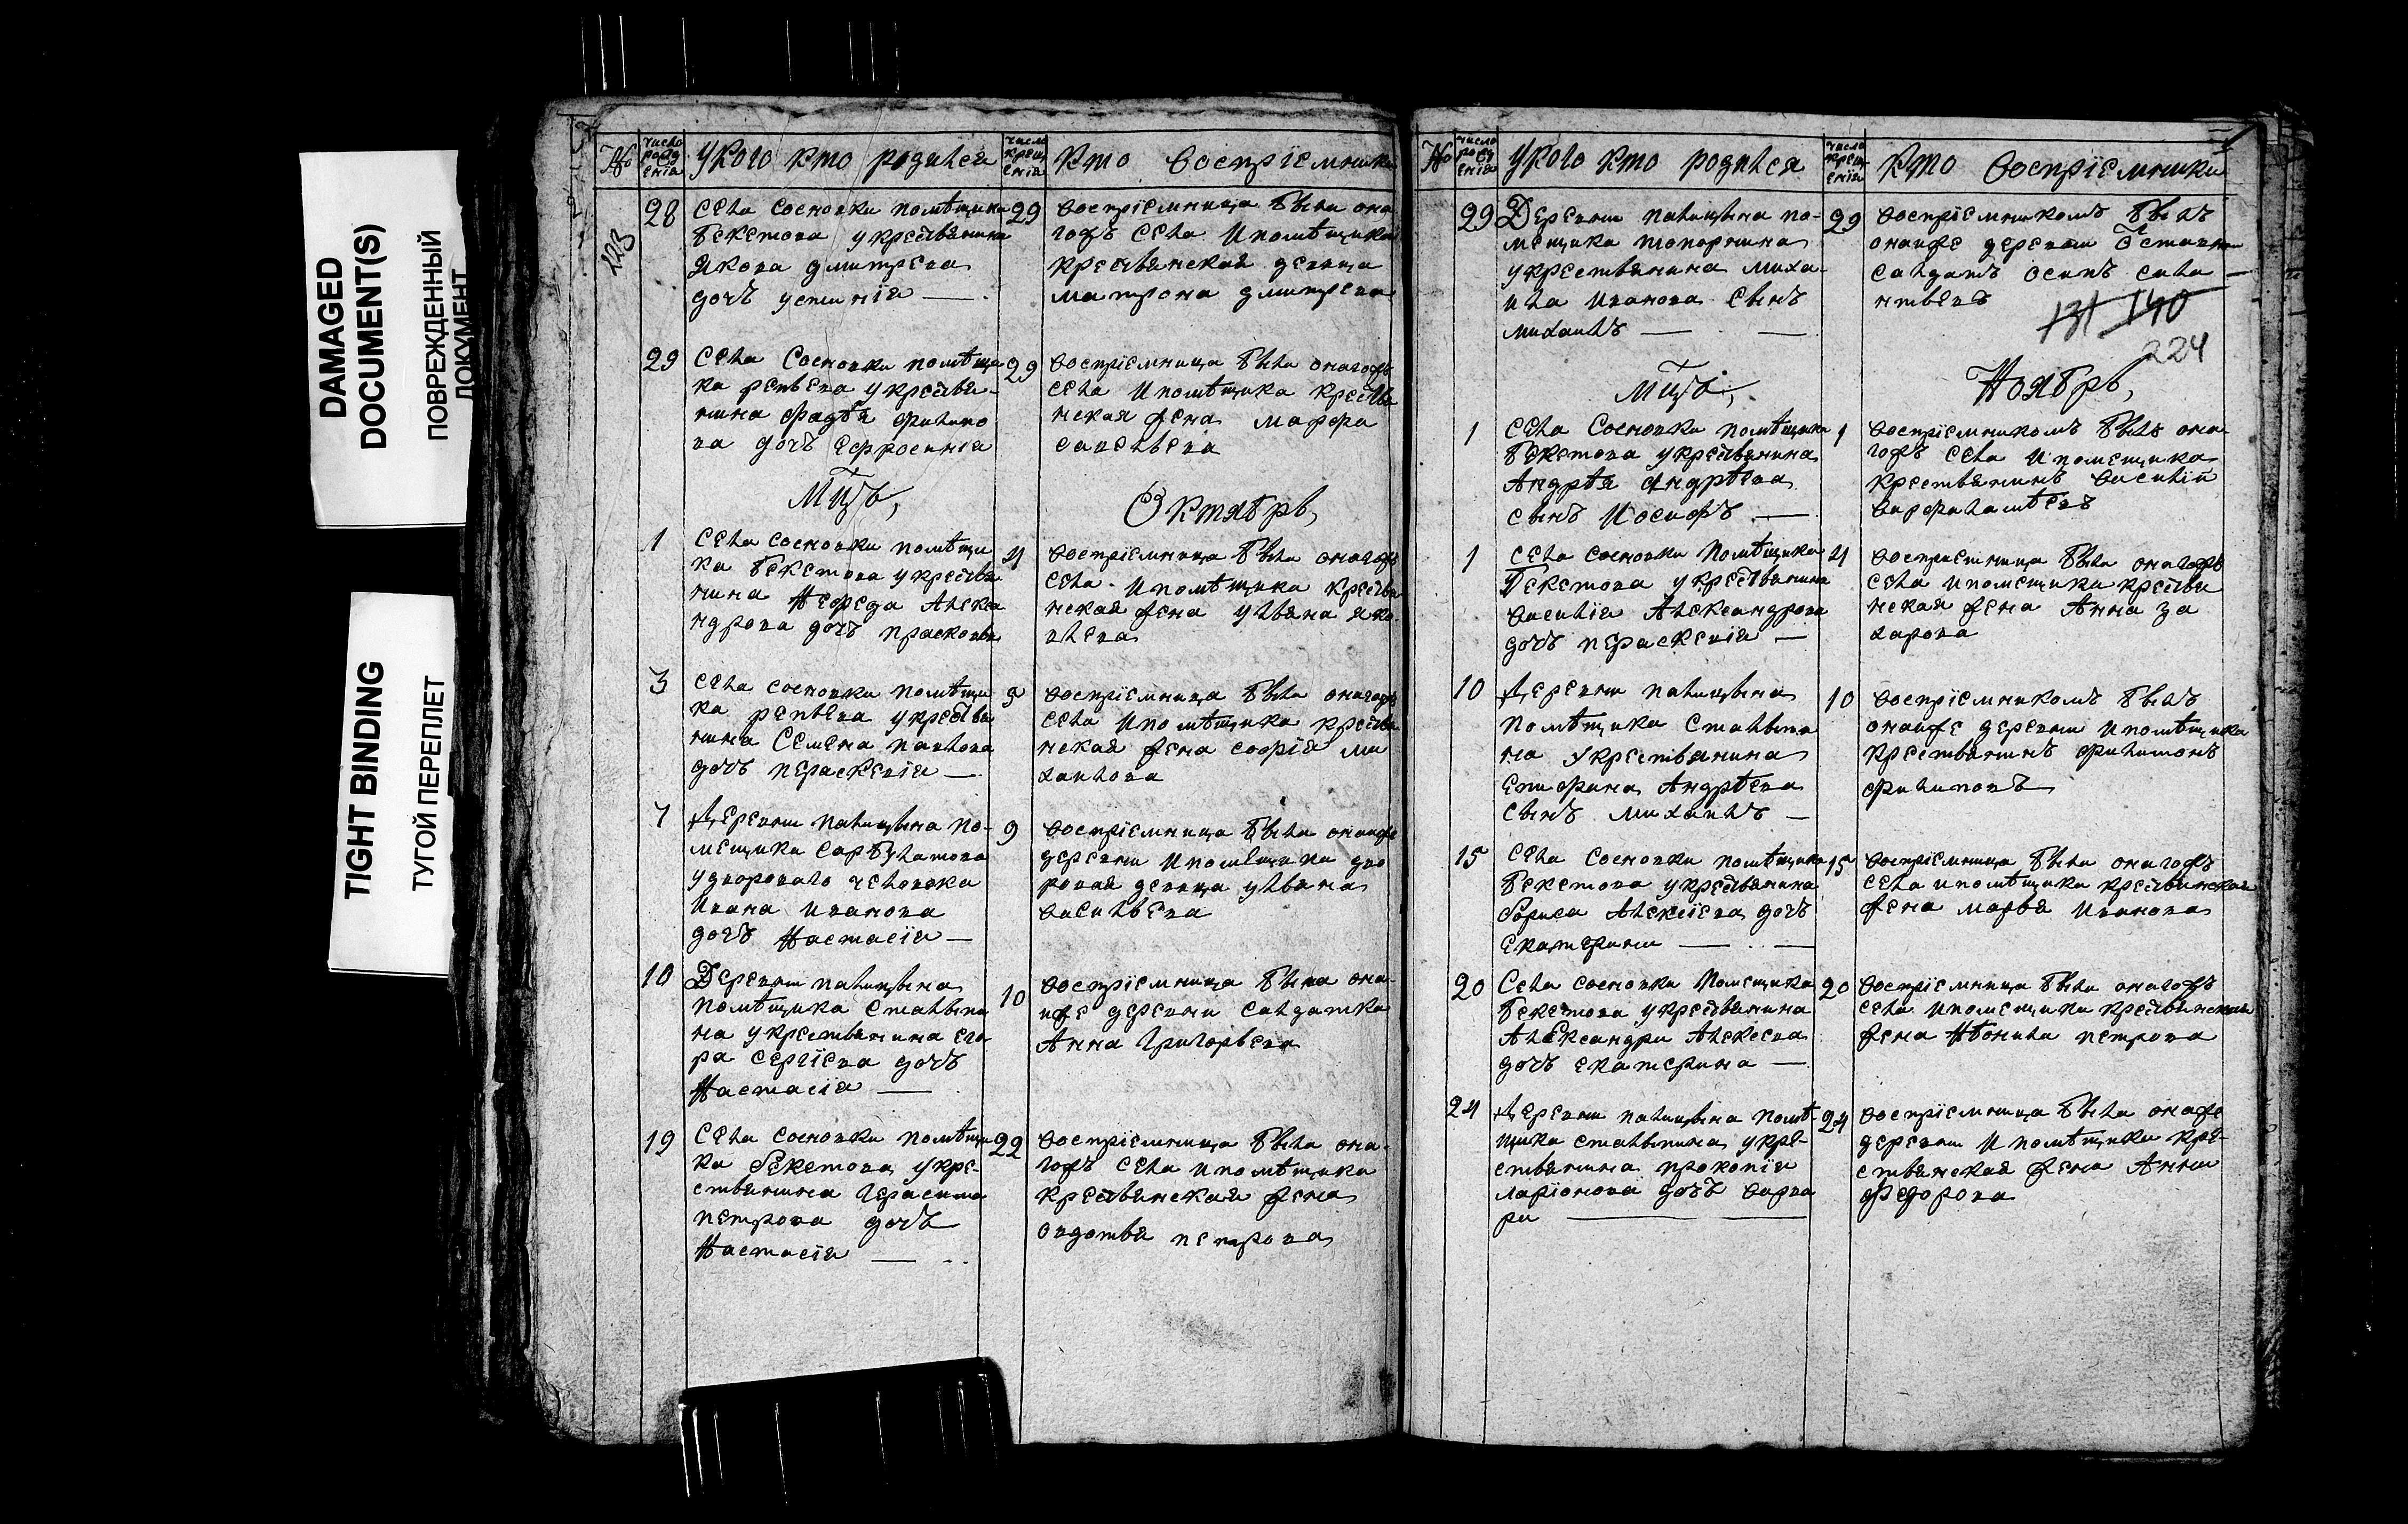 DAMAGED
DOCUMENT(S)
ПОВРЕЖДЕННЫЙ
ДОКУМЕНТ
TIGHT BINDING
ТУГОЙ ПЕРЕПЛЕТ
№
число рождения
У кого кто родился
число крещения
Кто восприемники
123
28
села сосновки помѣщика
бекетова укрестьянина
якова дмитрева
дочь устинiя —
29
воспрiемница была она
гожъ села ипомѣщика
крестьянская девица
матрона дмитрева
29
села Сосновки помѣщи
ка репьева укрестья-
нина фадѣя филипо
ва дочь ефросинiя
29
воспрiемница была оногожъ
села ипомѣщика крестья
нская жена марфа
савельева
Мцъ,
Октябрь,
1
села сосновки помѣщи
ка бекетова укрестья
нина Нефеда Алекса
ндрова дочь прасковья
4
воспрiемница была оногожъ
села ипомѣщика крестья
нская жена ульяна яко
влева
3
села сосновки помѣщи
ка репьева укрестья
нина Семена павлова
дочь пераскевiя —
5
воспрiемница была оногожъ
села ипомѣщика крестья
нская жена софiя ми
хаилова
7
Деревни палицына по-
мещика
удворового человека
Ивана иванова
дочь Настасiя —
9
воспрiемница была онаже
деревни ипомещика дво
ровая девица ульяна
васильева
10
Деревни палицына
помѣщика столыпи
на укрестьянина его
ра сергiева дочь
Настасiя —
10
воспрiемница была она-
иже деревни салдатка
Анна Григорьева
19
Села сосновки помѣщи
ка бекетова укре-
стьянина герасима
петрова дочь
Настасiя —
22
воспрiемница была она-
гожъ села ипомѣщика
крестьянская жена
овдотья петрова
№
число рождения
У кого кто родился
число крещения
Кто восприемники
29
Деревни палицына по-
мещика топорнина
укрестьянина миха-
ила иванова сынъ
михаилъ — —
29
воспрiемникомъ былъ
онаиже деревни
салдатъ осипъ
131 140
224
Мцъ,
Ноябрь,
1
села Сосновки помѣщика
бекетова укрестьянина
Андрѣя Андрѣева
сынъ Иосифъ —
1
воспрiемникомъ былъ она-
гожъ села ипомещика
крестьянинъ василiй
варфаламѣевъ
1
села сосновки помѣщика
бекетова укрестьянина
василiя Александрова
дочь пераскевiя —
4
воспрiемница была оногожъ
села ипомещика крестья
нская жена Анна за
харова
10
Деревни палицына
помѣщика столыпи
на укрестьянина
епифана Андрѣева
сынъ михаилъ —
10
воспрiемникомъ былъ
онаиже деревни ипомѣщика
крестьянинъ филимонъ
филиповъ
15
села сосновки помѣщика
бекетова укрестьянина
бориса Алексiева дочь
екатерина — —
15
воспрiемница была оногожъ
села ипомѣщика крестьянская
жена марья иванова
20
Села сосновки помещика
бекетова укрестьянина
Александра Алексева
дочь екатерина —
20
воспрiемница была оногожъ
села ипомещика крестьянская
жена петрова
24
Деревни палицына помѣ-
щика столыпина укре-
стьянина прокопiя
ларiонова дочь варва
ра —
24
воспрiемница была онаже
деревни ипомѣщика кре-
стьянская жена Анна
федорова